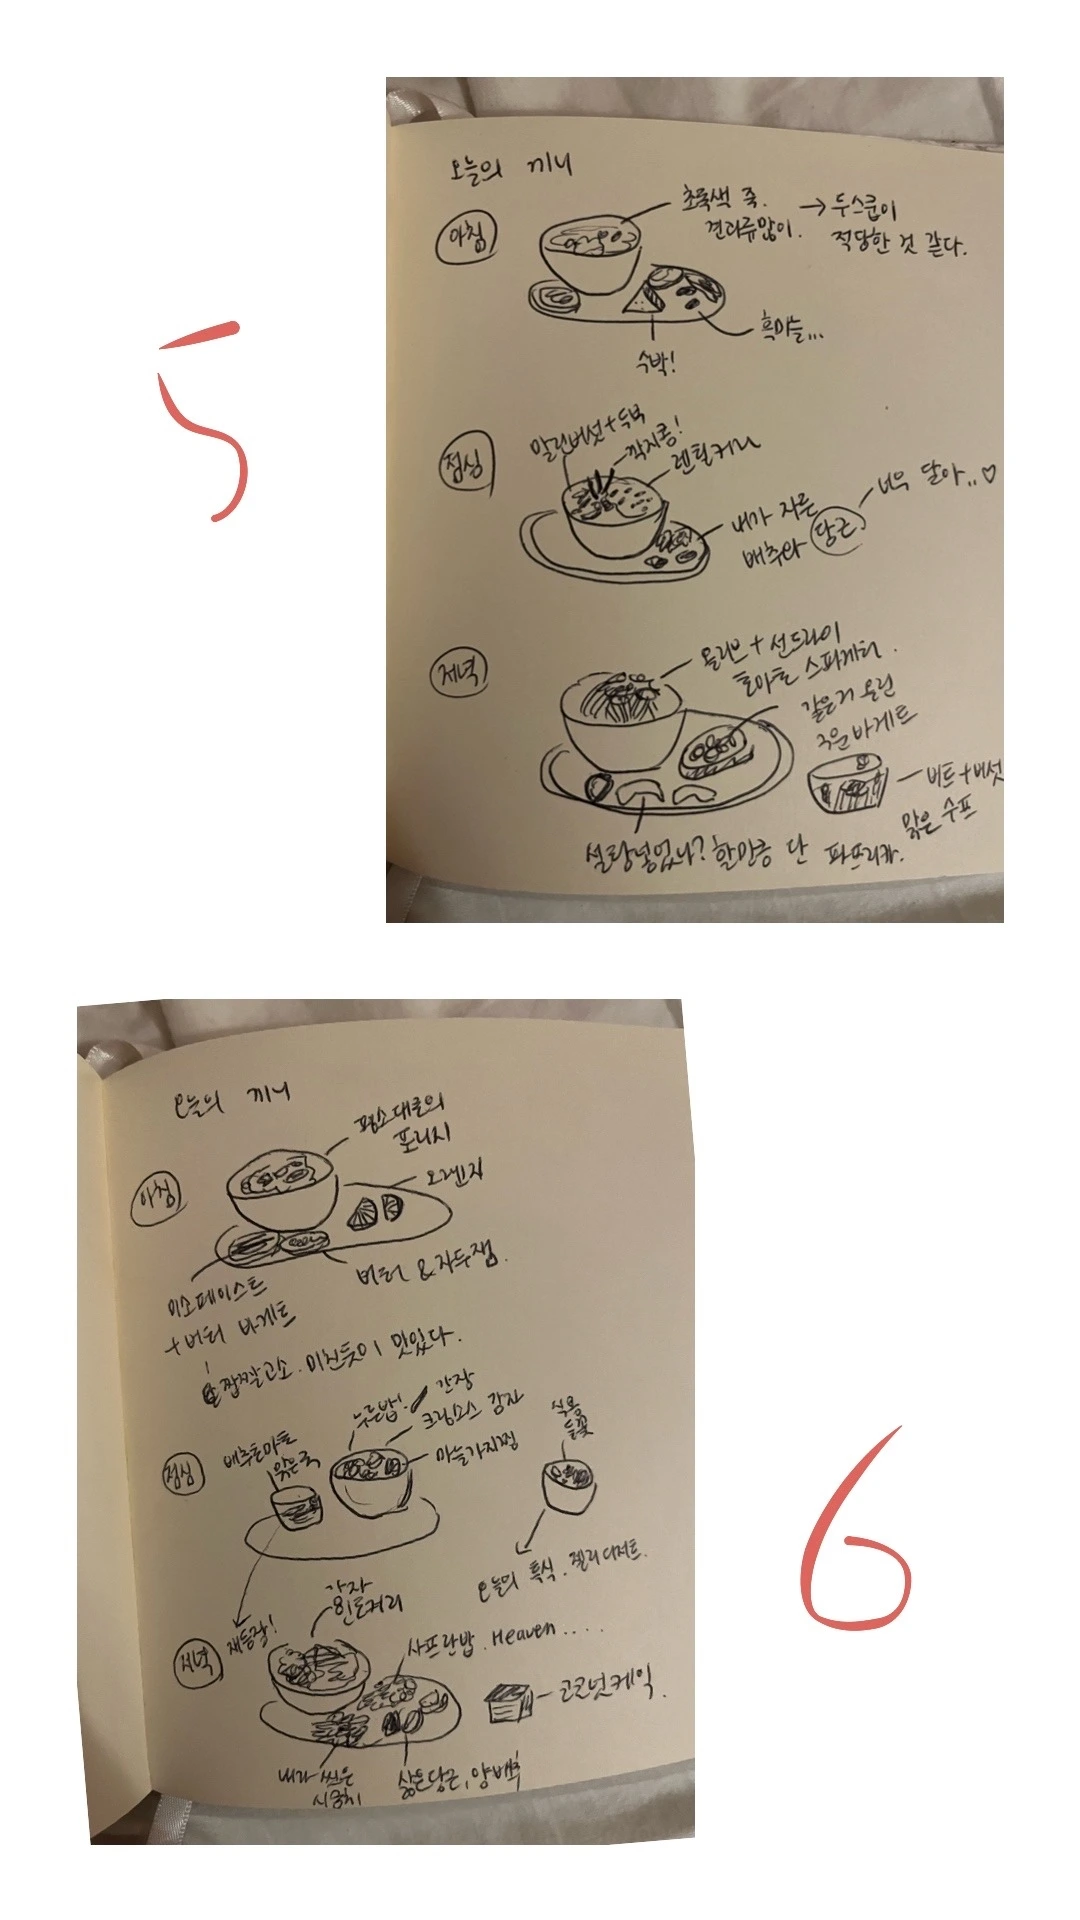 5
오늘의 끼니
아침
초록색 죽.
견과류많이.
→ 두스쿱이
적당한 것 같다.
흑마늘...
수박!
점심
말린버섯+두부
깍지콩!
렌틸커리
내가 자른
배추와 당근.
너무 달아..♡
저녁
올리브 + 선드라이
토마토 스파게티.
같은거 올린
구운바게트
비트+버섯
맑은 수프
설탕넣었나? 할만큼 단 파프리카.
6
오늘의 끼니
아침
평소대로의
포리지
오렌지
버터 & 자두잼.
미소페이스트
+버터 바게트
짭짤고소. 미친듯이 맛있다.
점심
배추토마토
맑은국
누른밥!
간장
크림소스 감자
마늘가지찜
식용
들꽃
오늘의 특식. 젤리디저트.
재등장!
저녁
감자
&인도커리
사프란밥. Heaven....
코코넛케익.
내가 썰은
시금치
삶은당근, 양배추